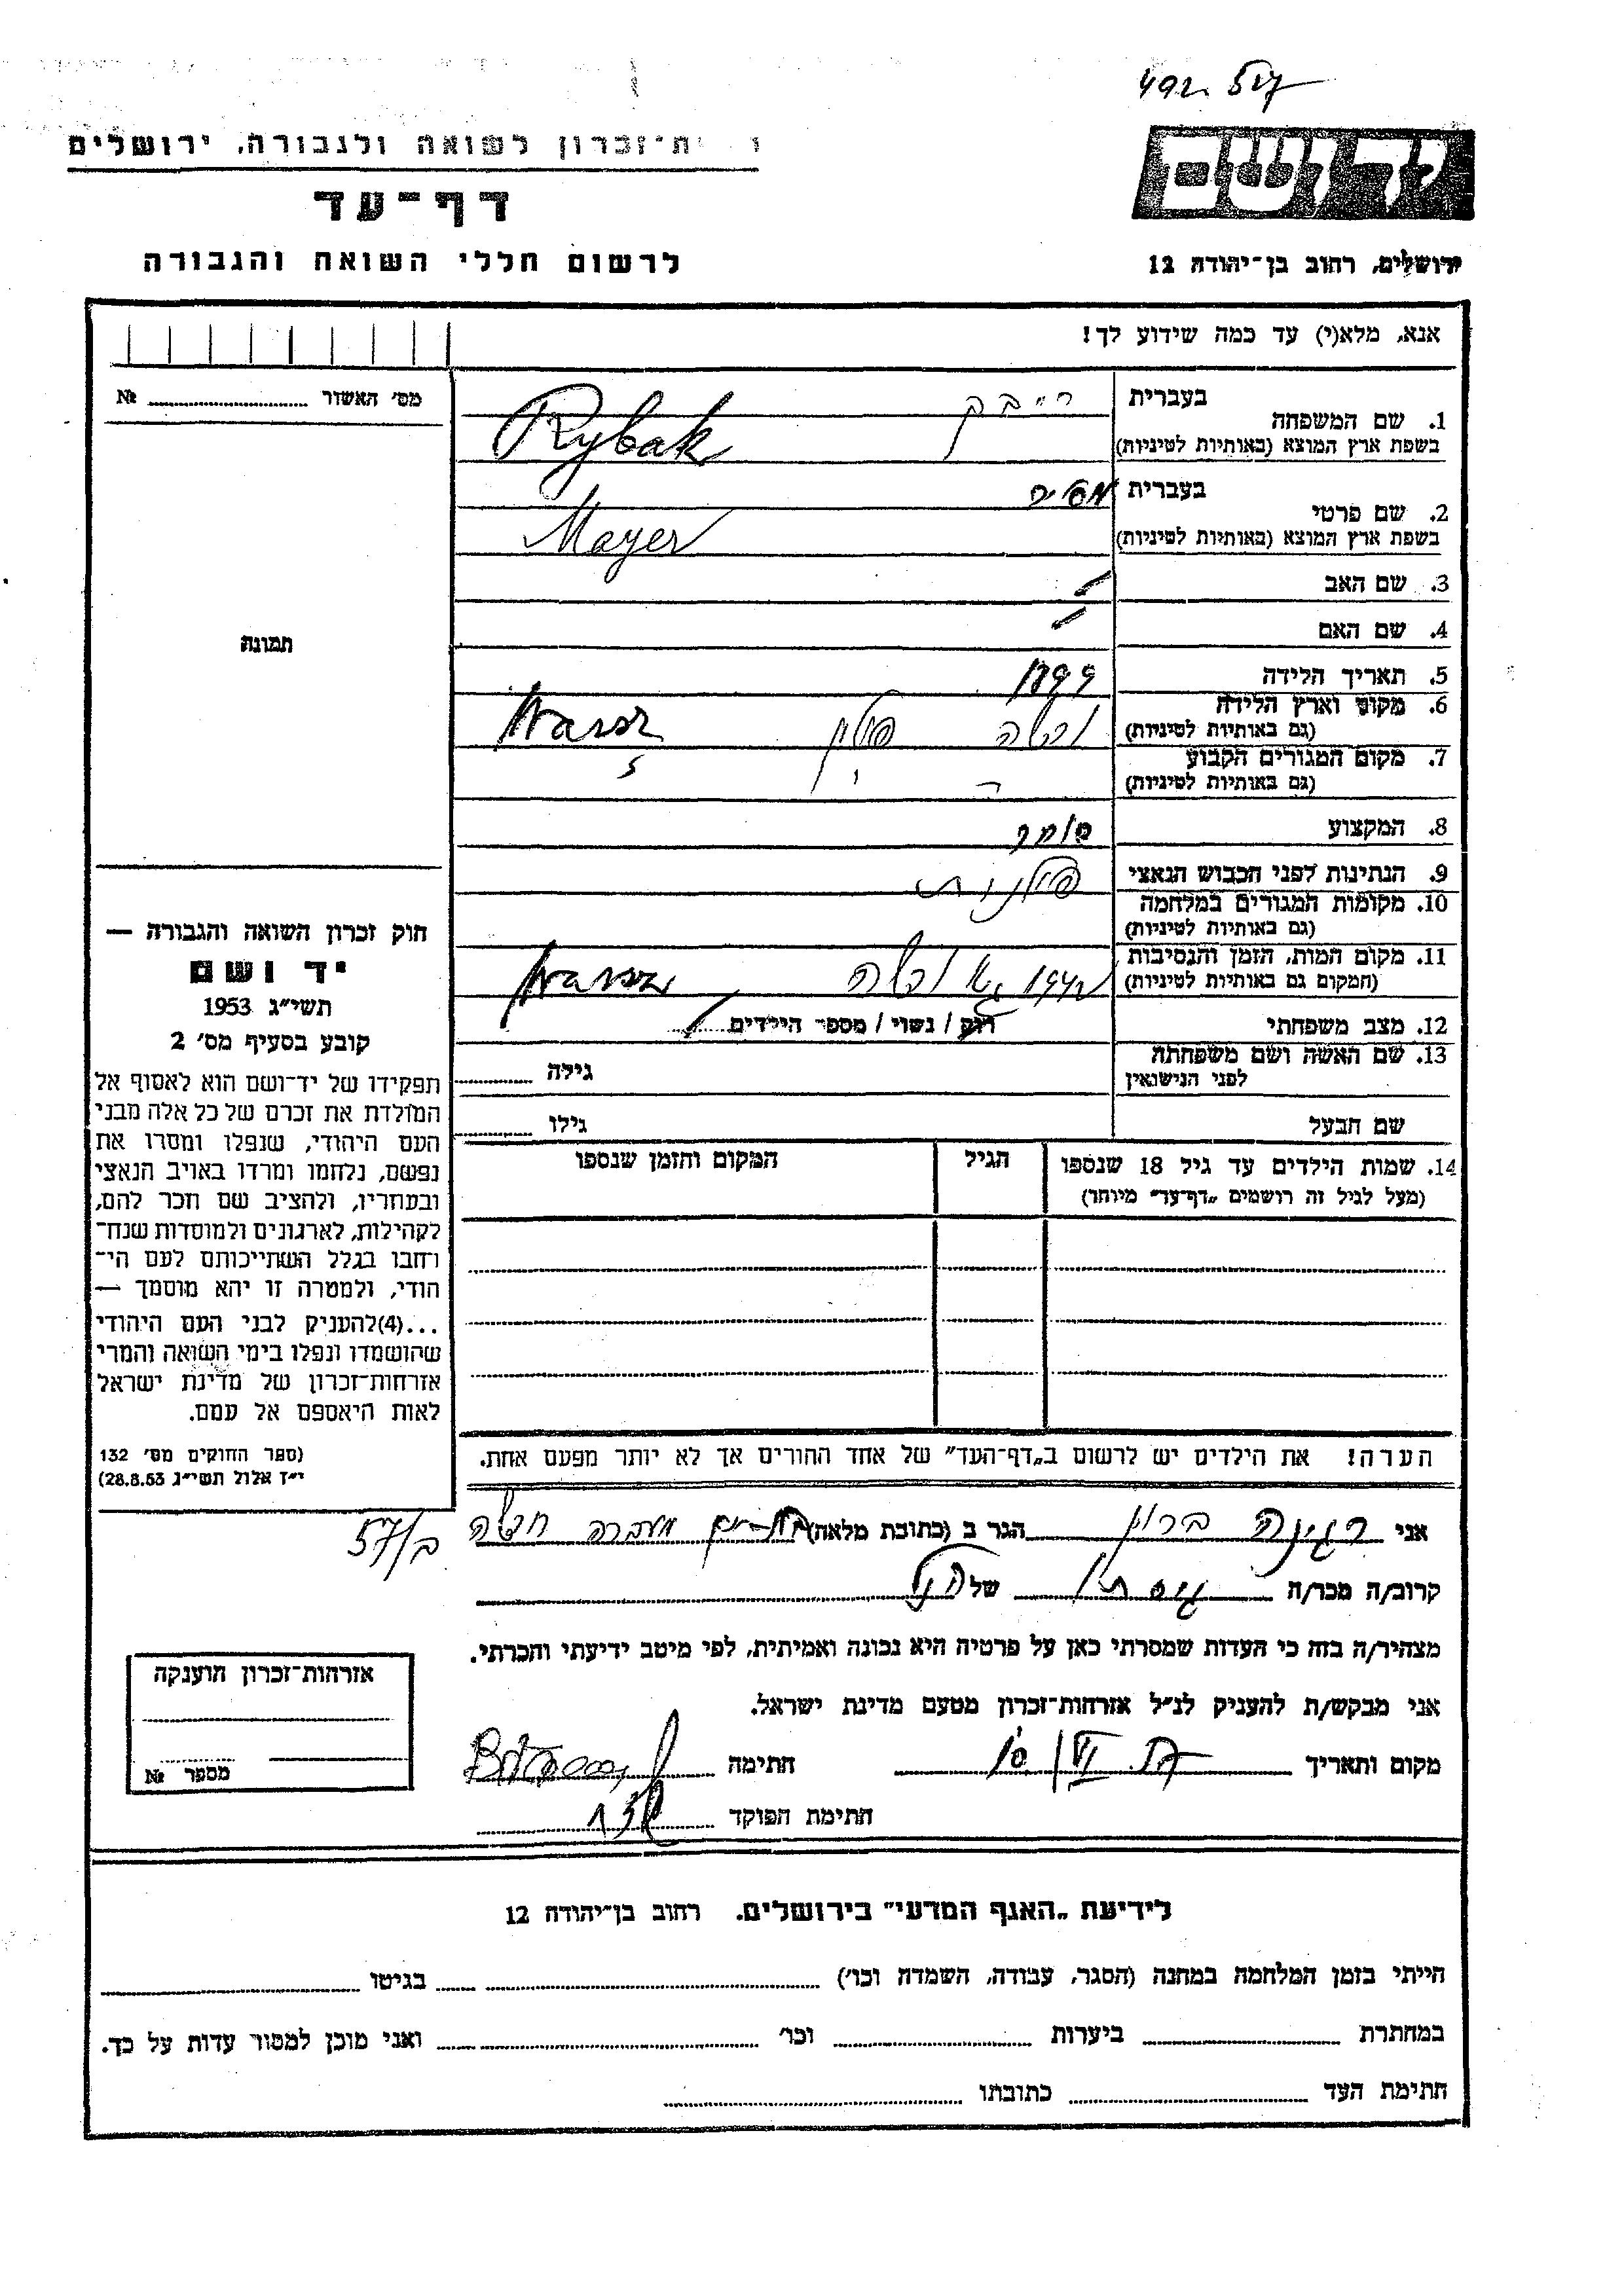 492
ת־זכרון לשואה ולגבורה, ירושלים
דף־עד
לרשום חללי השואה והגבורה
יד ושם
ירושלים, רחוב בן־יהודה 12
אנא, מלא(י) עד כמה שידוע לך!
מס׳ האשור № 
1. שם המשפחה בעברית רייבק
בשפת ארץ המוצא (באותיות לטיניות) Rybak
2. שם פרטי בעברית
בשפת ארץ המוצא (באותיות לטיניות) Mayer
3. שם האב
4. שם האם
5. תאריך הלידה 1899
6. מקום וארץ הלידה ורשה פולין
(גם באותיות לטיניות)
7. מקום המגורים הקבוע
(גם באותיות לטיניות)
8. המקצוע סוחר
9. הנתינות לפני הכבוש הנאצי פולנית
10. מקומות המגורים במלחמה
(גם באותיות לטיניות)
11. מקום המות, הזמן והנסיבות ורשה
(המקום גם באותיות לטיניות)
12. מצב משפחתי רוק / נשוי / מספר הילדים
13. שם האשה ושם משפחתה
לפני הנישואין גילה
שם הבעל גילו
14. שמות הילדים עד גיל 18 שנספו הגיל המקום והזמן שנספו
(מעל לגיל זה רושמים „דף־עד״ מיוחד)
הערה! את הילדים יש לרשום ב„דף־העד״ של אחד ההורים אך לא יותר מפעם אחת.
תמונה
חוק זכרון השואה והגבורה —
יד ושם
תשי״ג 1953
קובע בסעיף מס׳ 2
תפקידו של יד־ושם הוא לאסוף אל
המולדת את זכרם של כל אלה מבני
העם היהודי, שנפלו ומסרו את
נפשם, נלחמו ומרדו באויב הנאצי
ובעוזריו, ולהציב שם וזכר להם,
לקהילות, לארגונים ולמוסדות שנח־
רחבו בגלל השתייכותם לעם הי־
הודי, ולמטרה זו יהא מוסמך —
...(4)להעניק לבני העם היהודי
שהושמדו ונפלו בימי השואה והמרי
אזרחות־זכרון של מדינת ישראל
לאות היאספם אל עמם.
(ספר החוקים מס׳ 132
י״ז אלול תשי״ג 28.8.53)
אני רגינה ברון הגר ב (כתובת מלאה) מעברה ב/57
קרוב/ה מכר/ה גיסתו של הנ״ל
מצהיר/ה בזה כי העדות שמסרתי כאן על פרטיה היא נכונה ואמיתית, לפי מיטב ידיעתי והכרתי.
אני מבקש/ת להעניק לנ״ל אזרחות־זכרון מטעם מדינת ישראל.
מקום ותאריך חתימה
חתימת הפוקד
אזרחות־זכרון הוענקה
מספר №
לידיעת „האגף המדעי״ בירושלים. רחוב בן־יהודה 12
הייתי בזמן המלחמה במחנה (הסגר, עבודה, השמדה וכו׳) בגיטו
במחתרת ביערות וכו׳ ואני מוכן למסור עדות על כך.
חתימת העד כתובתו